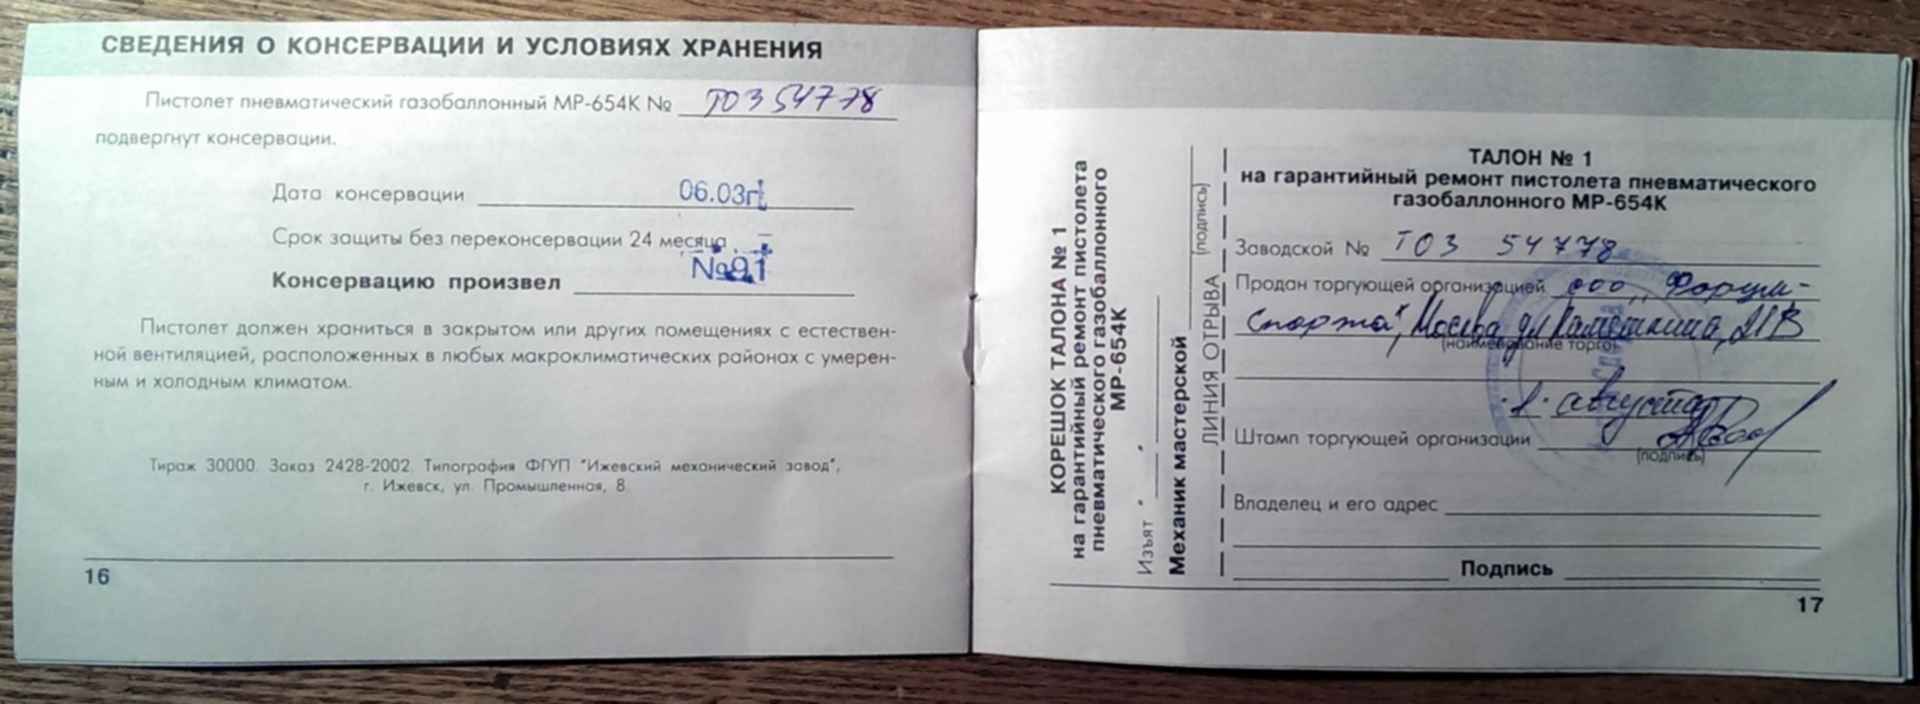 СВЕДЕНИЯ О КОНСЕРВАЦИИ И УСЛОВИЯХ ХРАНЕНИЯ
Пистолет пневматический газобаллонный МР-654К № Т03 54778
подвергнут консервации.
Дата консервации 06.03г.
Срок защиты без переконсервации 24 месяца.
Консервацию произвел №91
Пистолет должен храниться в закрытом или других помещениях с естествен-
ной вентиляцией, расположенных в любых макроклиматических районах с умерен-
ным и холодным климатом.
Тираж 30000. Заказ 2428-2002. Типография ФГУП "Ижевский механический завод",
г. Ижевск, ул. Промышленная, 8.
16
КОРЕШОК ТАЛОНА № 1
на гарантийный ремонт пистолета
пневматического газобаллонного
МР-654К
Изъят " "
Механик мастерской
(подпись)
ЛИНИЯ ОТРЫВА
ТАЛОН № 1
на гарантийный ремонт пистолета пневматического
газобаллонного МР-654К
Заводской № Т03 54778
Продан торгующей организацией ООО "Форум-
Спорта", Москва, ул
(наименование торго
августа
Штамп торгующей организации
(подпись)
Владелец и его адрес
Подпись
17